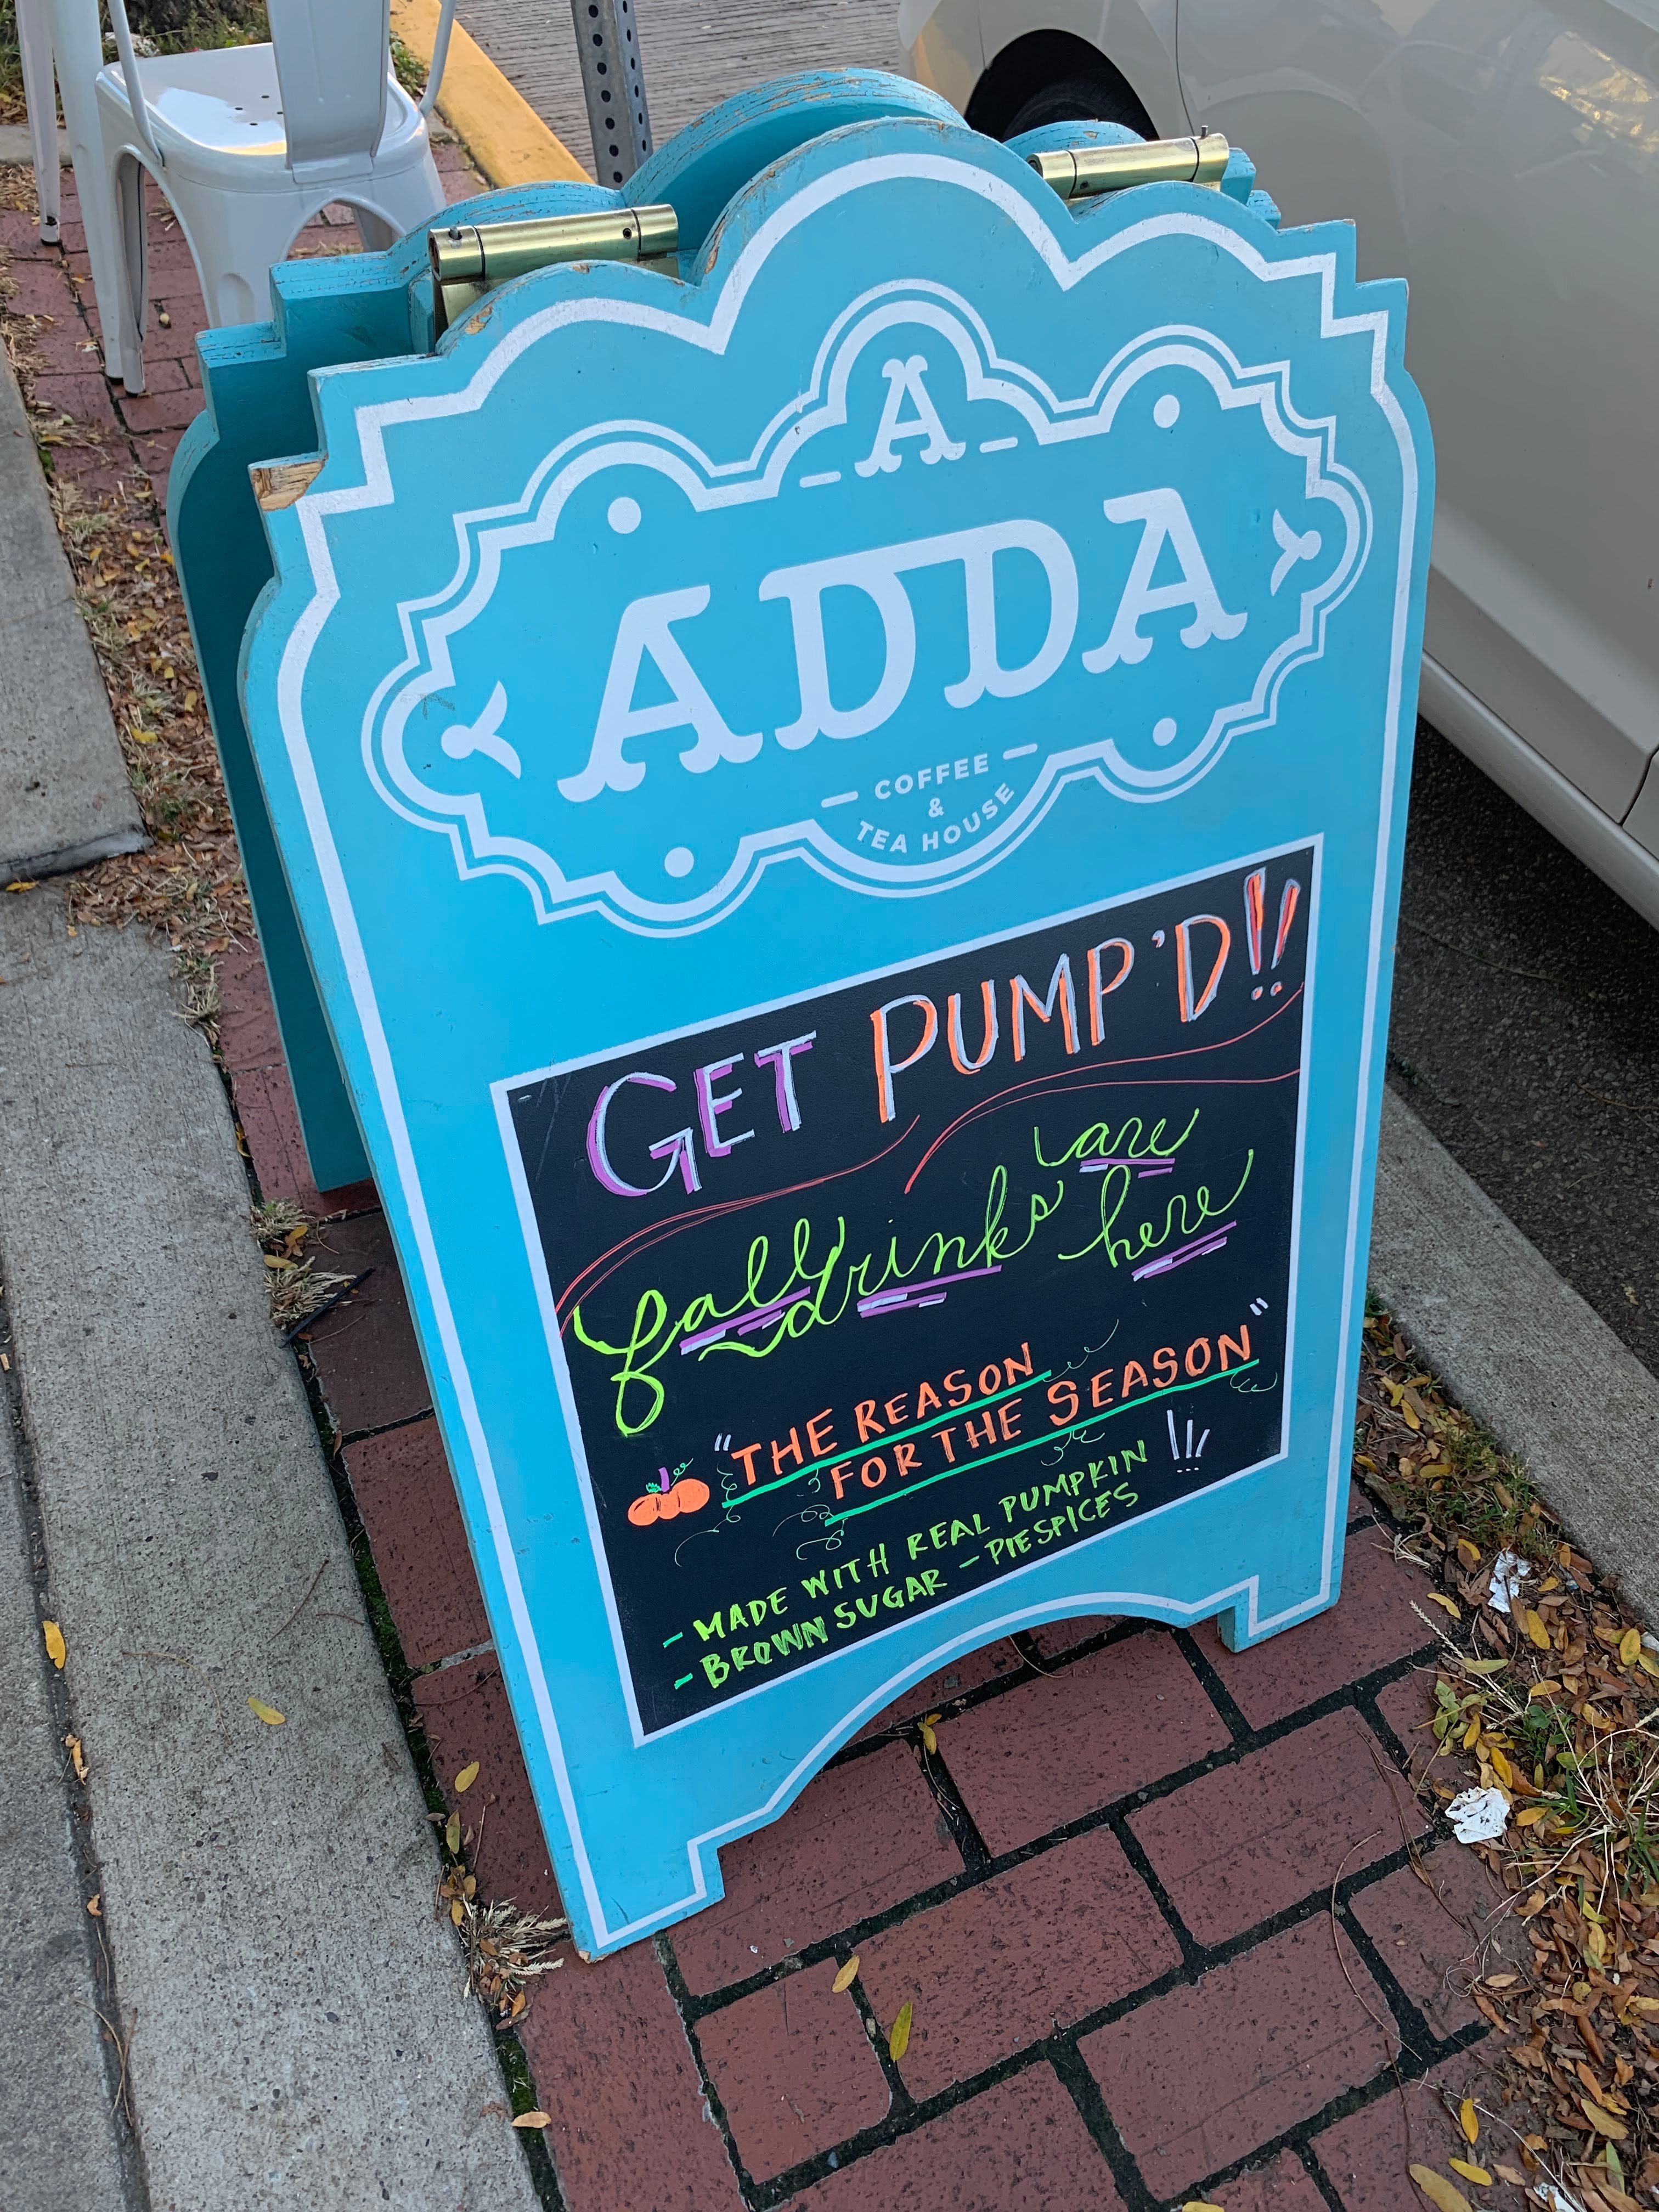 A
ADDA
COFFEE
&
TEA HOUSE
GET PUMP'D!!
fall drinks are
here
"THE REASON
FOR THE SEASON"
- MADE WITH REAL PUMPKIN !!!
- BROWN SUGAR - PIE SPICES